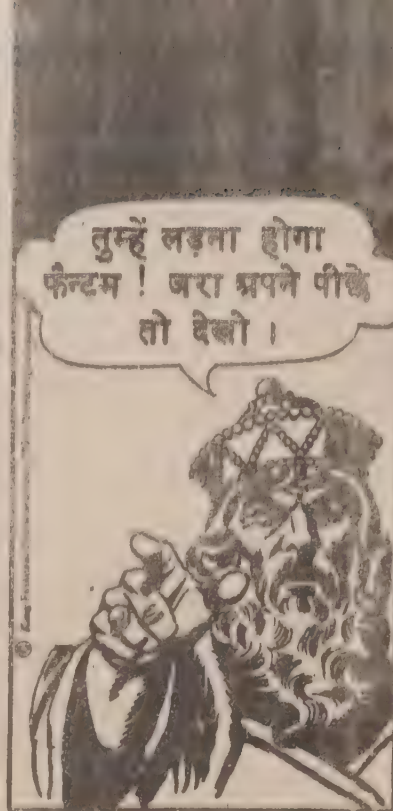 तुम्हें लड़ना होगा
फैन्टम ! जरा अपने पीछे
तो देखो ।
©